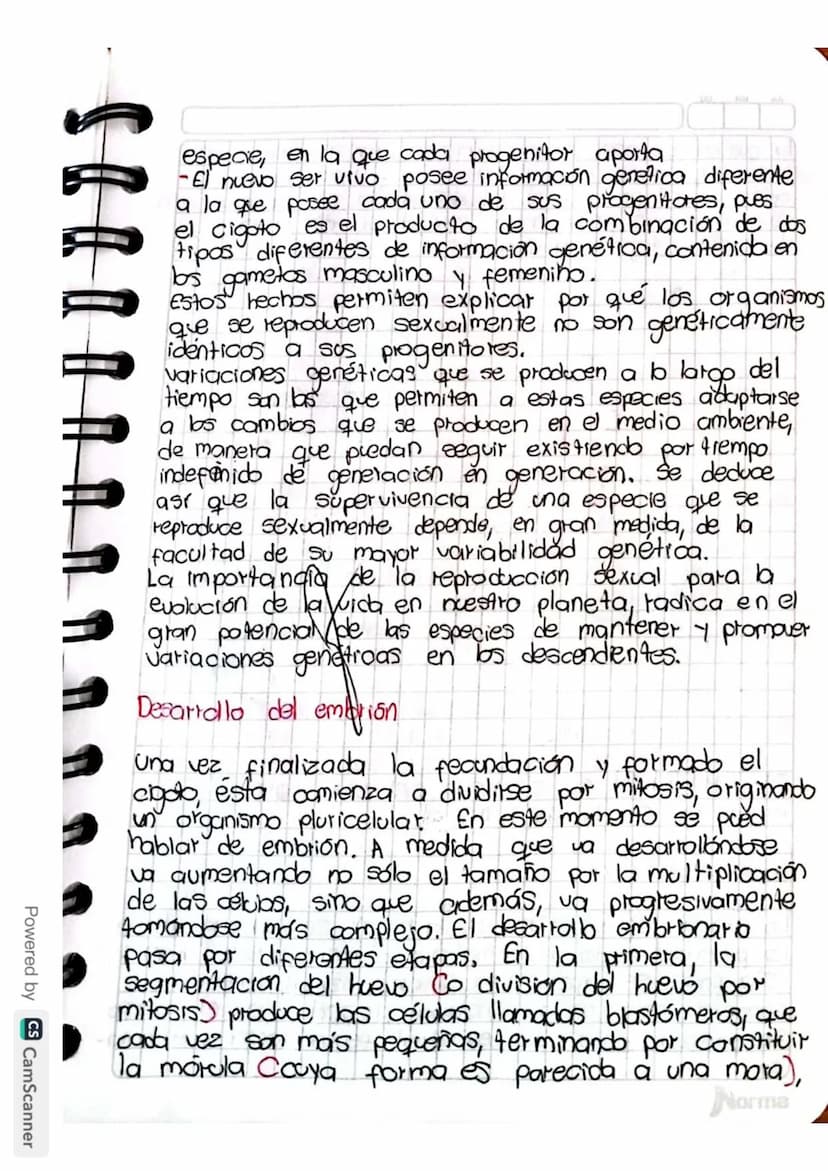 especie, en la que cada progenitor aporta
- El nuevo ser vivo posee información genética diferente
a la que posee cada uno de sus progenitores, pues
el cigoto es el producto de la combinación de dos
tipos diferentes de información genética, contenida en
los gametos masculino y femenino.
Estos hechos permiten explicar por qué los organismos
que se reproducen sexualmente no son genéticamente
idénticos a sus progenitores.
variaciones genéticas que se producen a lo largo del
tiempo son las que permiten a estas especies adaptarse
a los cambios que se producen en el medio ambiente,
de manera que puedan seguir existiendo por tiempo
indefinido de generación en generación. Se deduce
así que la supervivencia de una especie que se
reproduce sexualmente depende, en gran medida, de la
facultad de su mayor variabilidad genética.
La importancia de la reproducción sexual para la
evolución de la vida en nuestro planeta, radica en el
gran potencial de las especies de mantener y promover
variaciones genéticas en los descendientes.
Desarrollo del embrión
una vez finalizada la fecundación y formado el
cigoto, ésta comienza a dividirse por mitosis, originando
un organismo pluricelular. En este momento se pued
hablar de embrión. A medida que va desarrollándose
va aumentando no sólo el tamaño por la multiplicación
de las células, sino que además, va progresivamente
tornándose más complejo. El desarrollo embrionario
pasa por diferentes etapas. En la primera, la
segmentación del huevo (o división del huevo por
mitosis) produce las células llamadas blastómeros, que
cada vez son más pequeñas, terminando por constituir
la mórula (cuya forma es parecida a una mora),
Norma
Powered by CS CamScanner